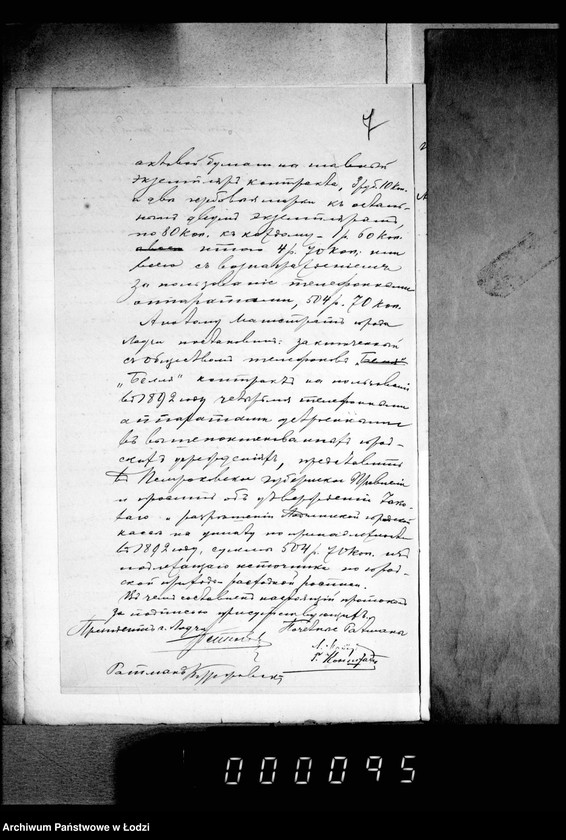 7
актовой бумаги на главный
экземпляръ контракта, 3 руб. 10 коп.
и два гербовыя марки къ осталь-
нымъ двумъ экземплярамъ
по 80 коп. къ каждому - 1 р. 60 коп.
итого 4 р. 70 коп. или
всего съ вознагражденіемъ
за пользованіе телефонными
аппаратами, 504 р. 70 коп.
А потому Магистратъ города
Лодзи постановилъ: заключенный
съ Обществомъ телефоновъ „Белля“
„Белля“ контрактъ на пользованіе
въ 1892 году четырьмя телефонными
аппаратами
въ вышепоименованныхъ город-
скихъ учрежденіяхъ, представить
въ Петроковское Губернское Правленіе
и просить объ утвержденіи тако-
ваго и разрѣшеніи городской
кассѣ на уплату по принадлежности
въ 1892 году, суммы 504 р. 70 коп. изъ
подлежащаго источника по город-
ской приходо-расходной росписи.
Въ чемъ составленъ настоящій протоколъ
за подписью присутствующихъ.
Президентъ г. Лодзи
Почетные Ратманы
Ратманъ
000095
Archiwum Państwowe w Łodzi